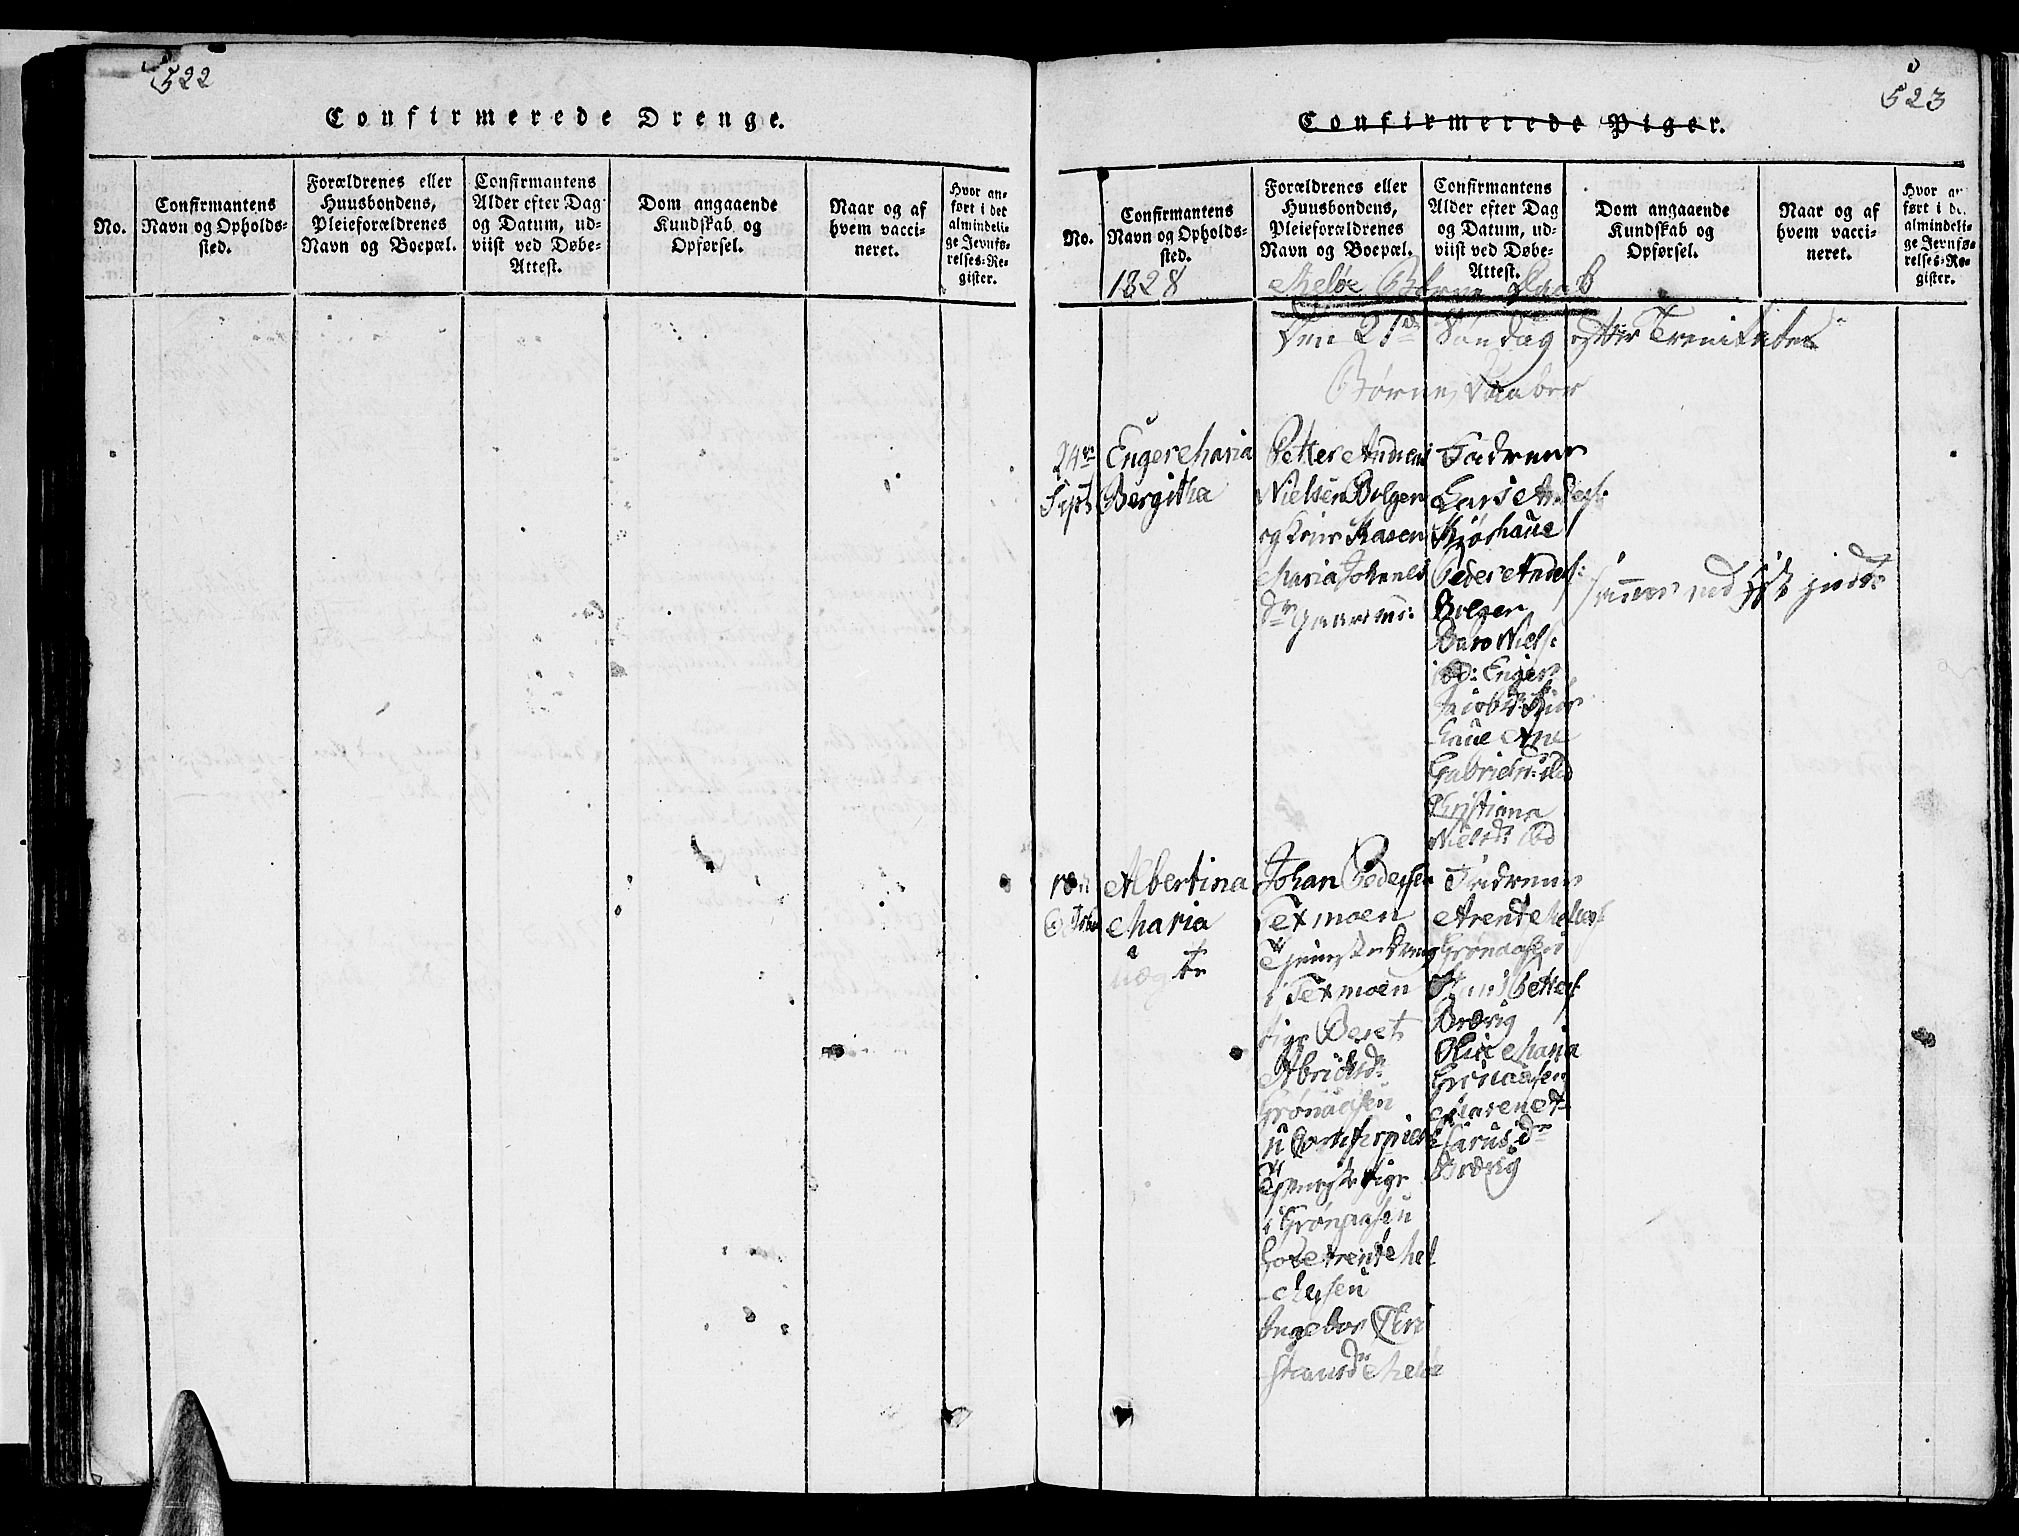 522
Confirmerede Drenge.
No.
Confirmantens
Navn og Opholds-
sted.
Forældrenes eller
Huusbondens,
Pleieforældrenes
Navn og Boepæl.
Confirmantens
Alder efter Dag
og Datum, ud-
viist ved Døbe-
Attest.
Dom angaaende
Kundskab og
Opførsel.
Naar og af
hvem vacci-
neret.
Hvor an-
ført i det
almindeli-
ge Jevnfø-
relses-Re-
gister.
523
Confirmerede Piger.
No.
Confirmantens
Navn og Opholds-
sted.
Forældrenes eller
Huusbondens,
Pleieforældrenes
Navn og Boepæl.
Confirmantens
Alder efter Dag
og Datum, ud-
viist ved Døbe-
Attest.
Dom angaaende
Kundskab og
Opførsel.
Naar og af
hvem vacci-
neret.
Hvor an-
ført i de
almindeli-
ge Jevnfø-
relses-Re-
gister.
1828
Meløe Børne Daab
Den 21de Søndag efter Trenitatis
Børne Daaber
24de
Sept
Enger Maria
Bergitha
Petter Andreas
Nielsen Bolgen
og Kone Maren
Maria Johnes
Dr
Fadrene
Lars Anders:
Skjøshaue
Peder Anders:
Bolgen
Niels:
ibd: Enger
Jacobsdr
haue Ane
Gabrielsdr ibd
Kristiana
Nielsdr ibd
18de
October
Albertina
Maria
uægte
Johan Pedersen
Texmoen
Tjeneste dreng
i Texmoen
Pige Beret
Abrichsdr
Grønaasen
Tjeneste Pige
i Grønaasen
hos Arent Mel
chersen
Ingebor Chri
stiansdr Meløe
Fadrene
Arent Melchers
Grønaasen
Hans Petters
Brævig
Maria
Grønaasen
Maren
Brævig